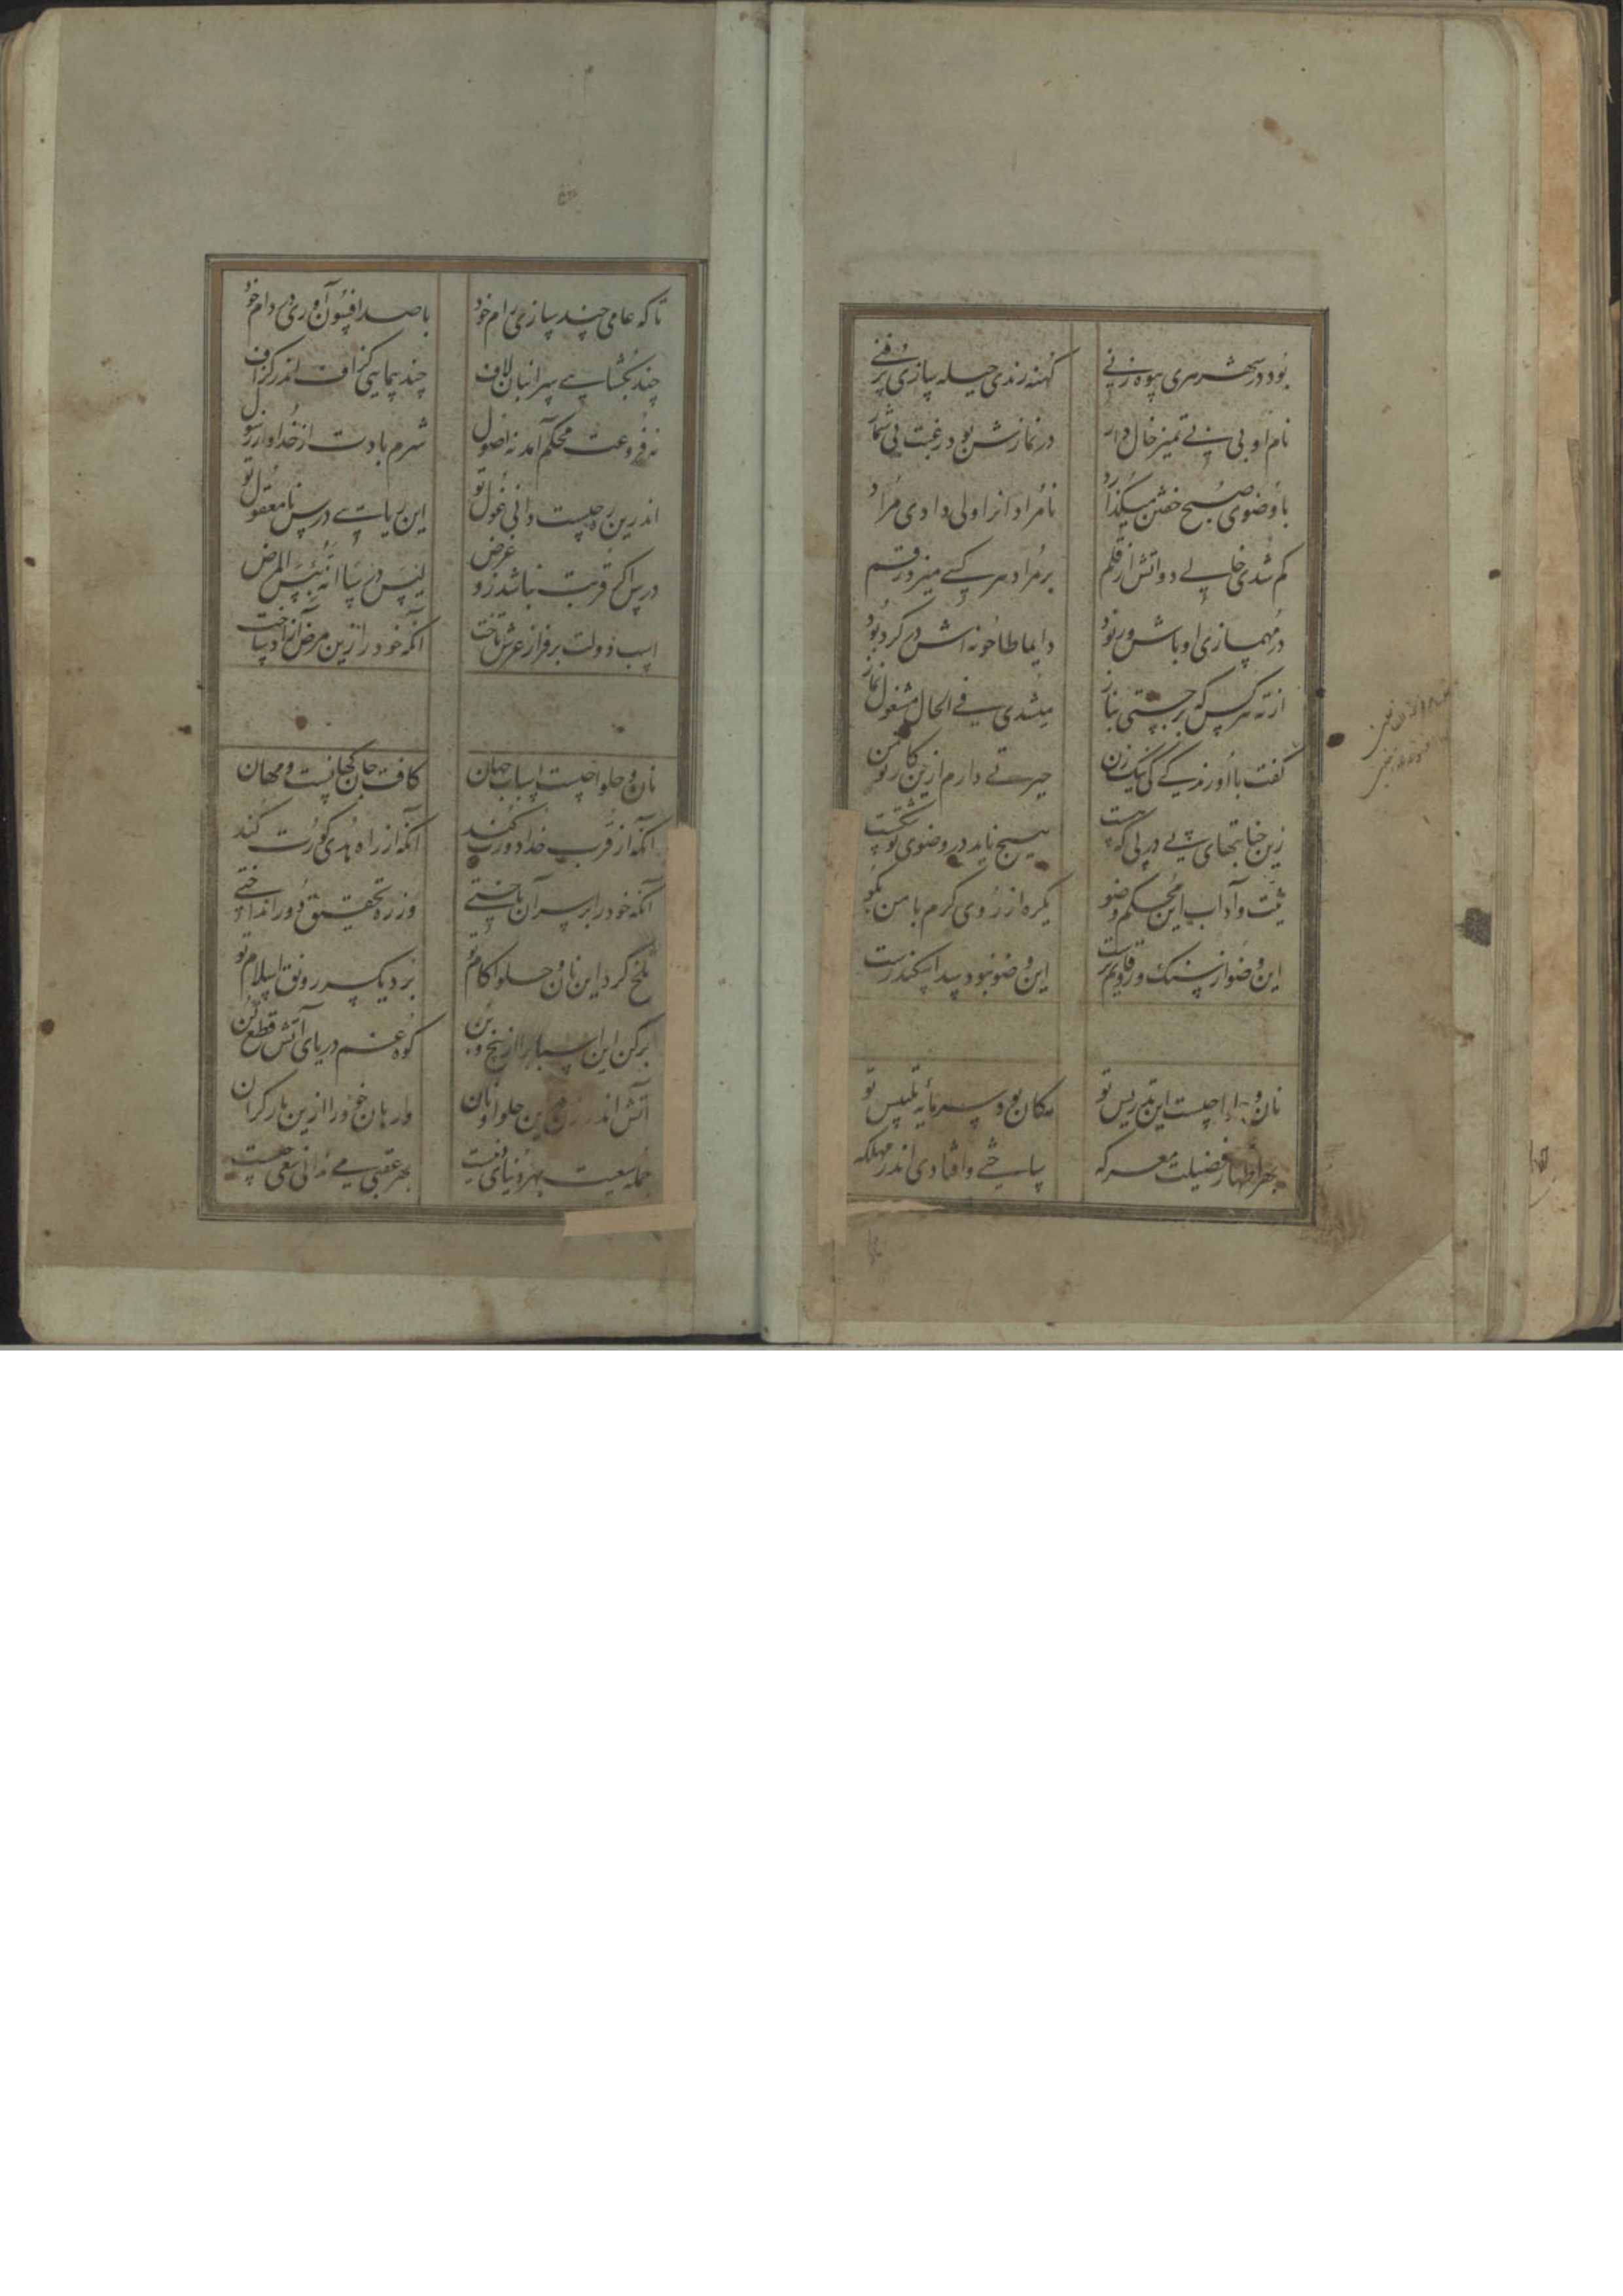 بود در شهر هری بیوه زنی
کهنه رندی حیله سازی پر فنی
نام او بی بی تمیز خالدار
در نمازش بود رغبت بی شمار
با وضوی صبح خفتن میگذارد
نامرادانرا ولی دادی مراد
کم شدی خالی دواتش از قلم
بر مراد هر کسی میزد رقم
در مهم سازی اوباش و رنود
دایما طاحونه اش در کرد بود
از ته هر کس که بر جستی بناز
میشدی فی الحال مشغول نماز
گفت با او رندکی کی نیک زن
حیرتی دارم ازین کار تو من
زین جنابتهای پی در پی که هست
هیچ ناید در وضوی تو شکست
نیت و آداب این محکم وضو
یکره از روی کرم با من بگو
این وضو از سنگ و رو قایم ترست
این وضو نبود سد اسکندرست
نان و حلوا چیست این تدریس تو
کان بود سرمایه تلبیس تو
بهر اظهار فضیلت معرکه
ساختی و افتادی اندر مهلکه
تا که عامی چند سازی رام خود
با صد افسون آوری در دام خود
چند بگشایی سر انبان لاف
چند پیمایی گزاف اندر گزاف
نه فروعت محکم آمد نه اصول
شرم بادت از خدا و از رسول
اندرین ره چیست دانی غول تو
این ریایی درس نامعقول تو
درس اگر قربت نباشد زو غرض
لیس درسا انه بئس المرض
اسب دولت بر فراز عرش تاخت
آنکه خود را زین مرض آزاد ساخت
نان و حلوا چیست اسباب جهان
کافت جان کهانست و مهان
آنکه از قرب خدا دورت کند
آنکه از راه هدی کورت کند
آنکه خود را بر سر آن باختی
وز ره تحقیق دور انداختی
تلخ کرد این نان و حلوا کام تو
برد یکسر رونق اسلام تو
برکن این اسباب را از بیخ و بن
کوه غم دریای آتش قطع کن
آتش اندر زن درین حلوا و نان
وارهان خود را ازین بار گران
جمله سعیت بهر دنیای دنیست
بهر عقبی می ندانی سعی چیست